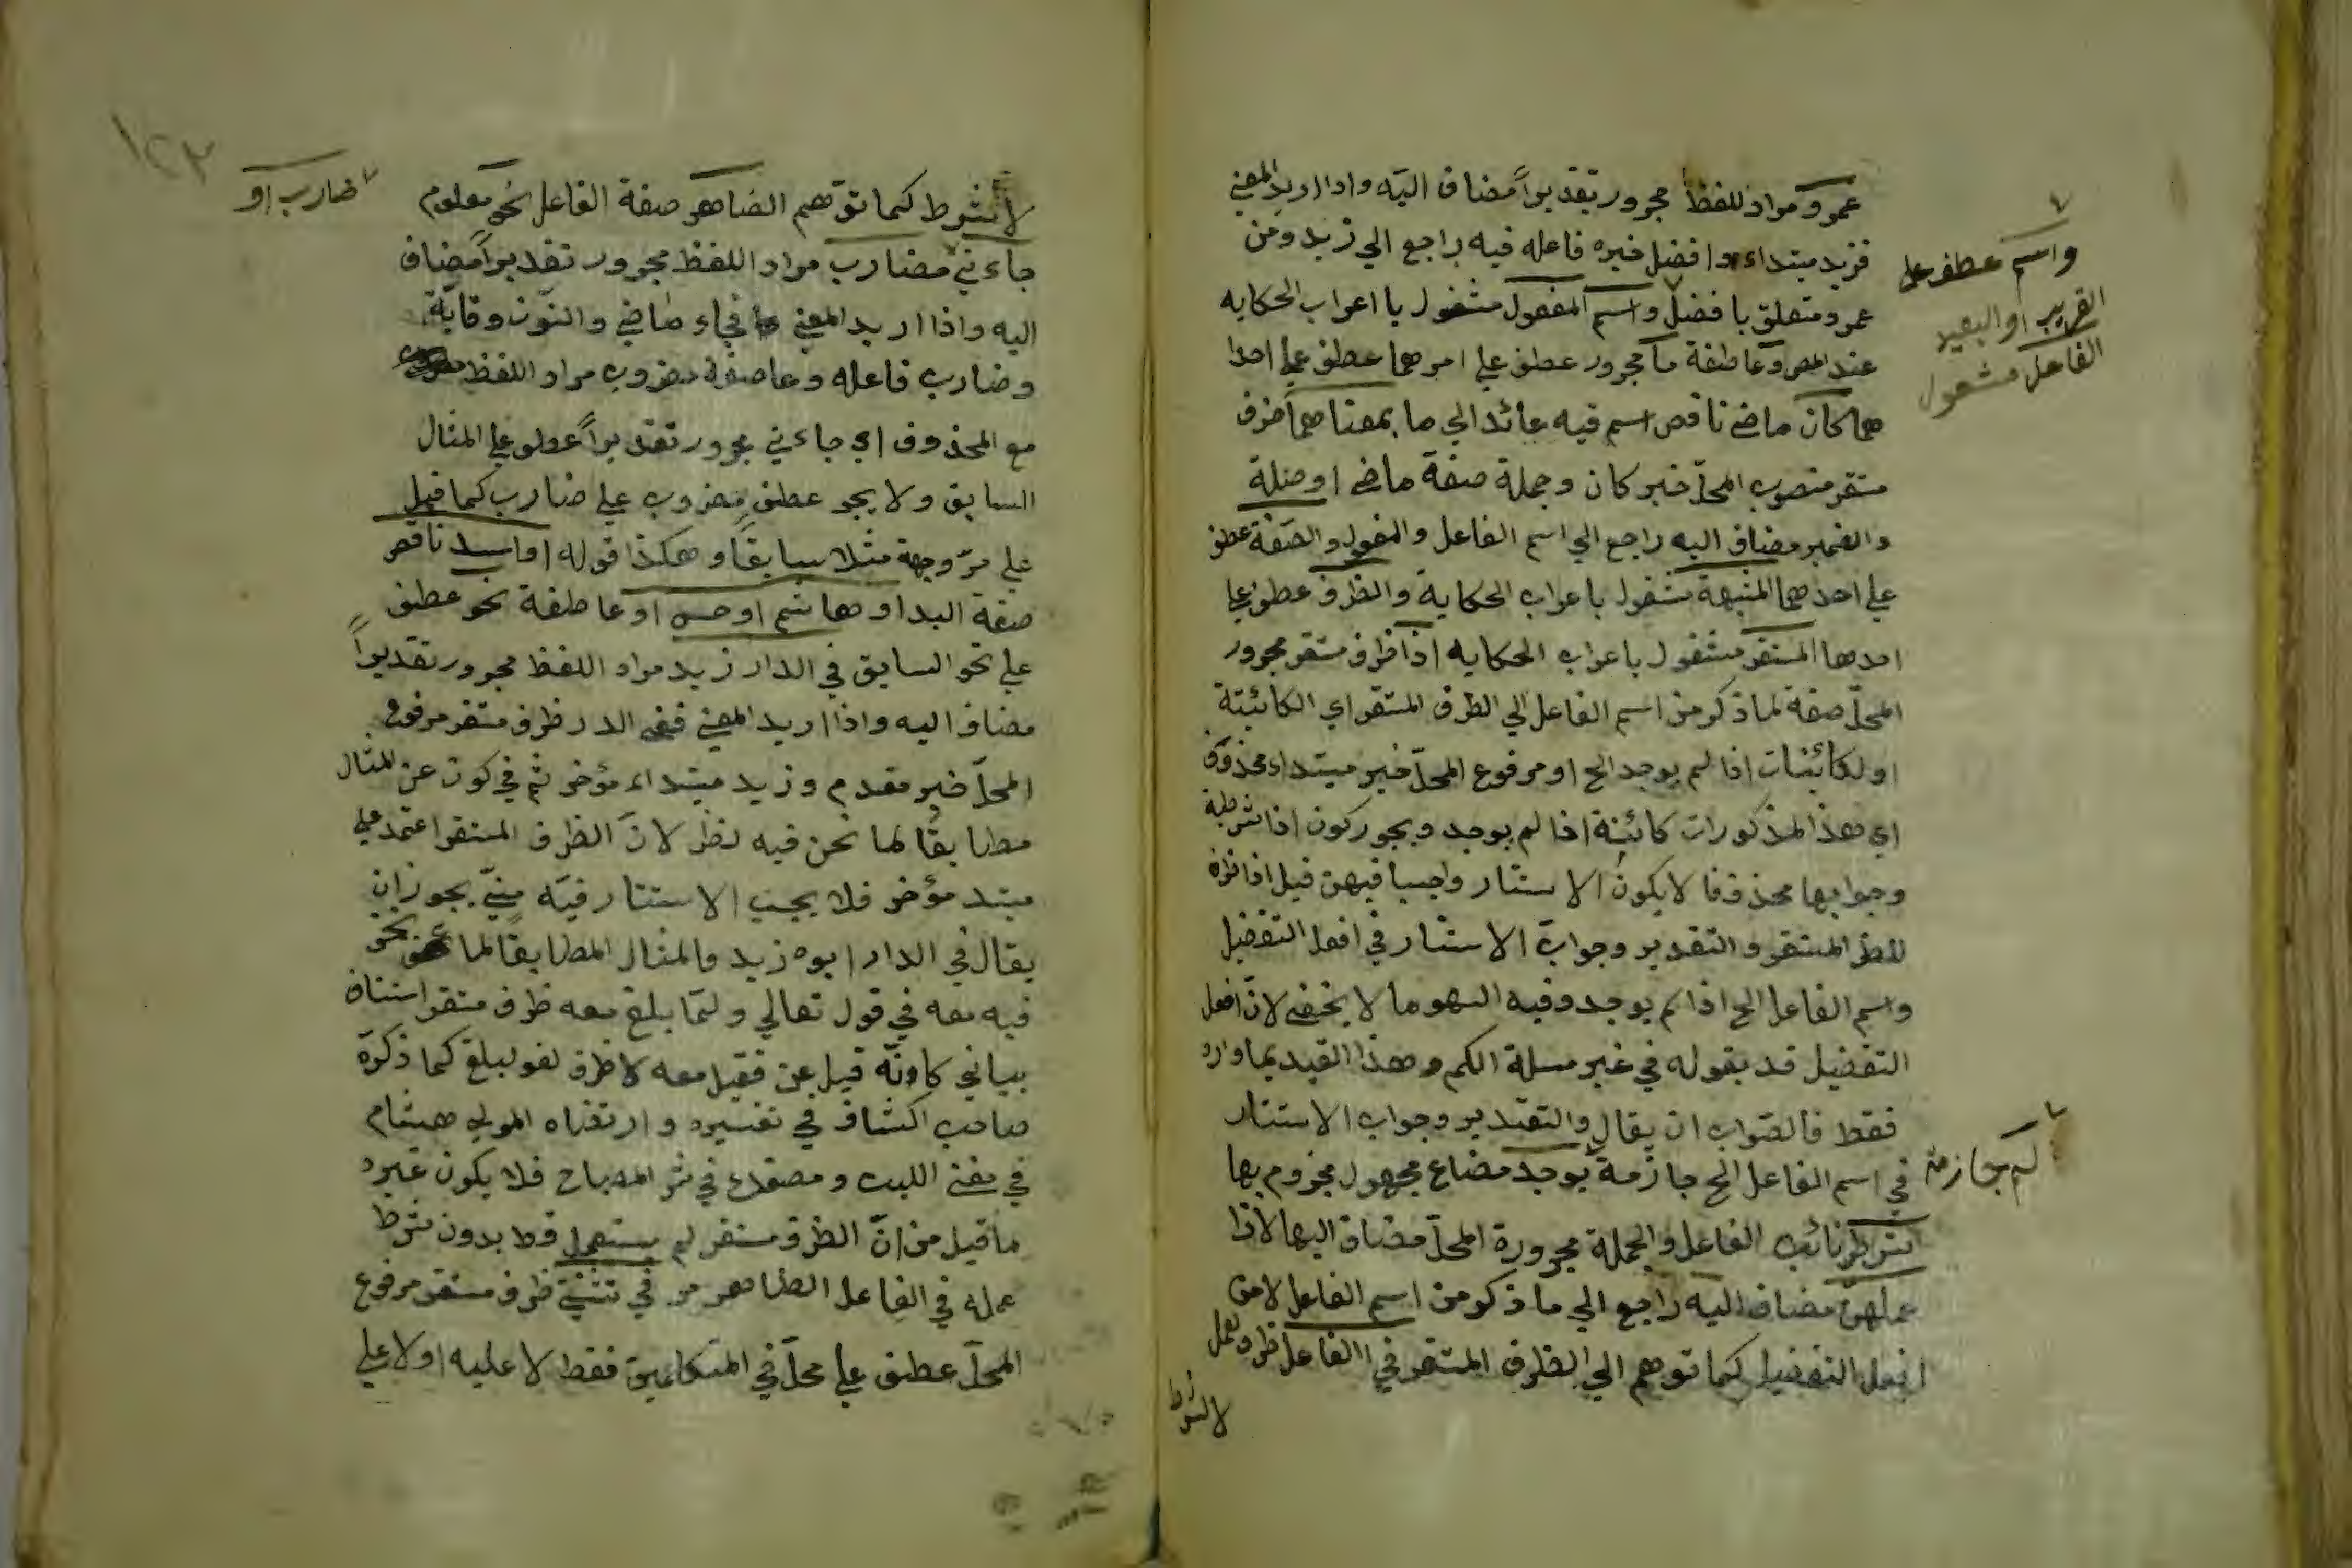 عمرو مراد للفظ مجرور تقديراً مضاف اليه واذا اريد المعنى
فزيد مبتداء وافضل خبره فاعله فيه راجع الي زيد ومن
عمرو متعلق بافضل واسم المفعول مشغول باعراب الحكايه
عند المص وعاطفة ما مجرور عطف علي امر هما عطف علي احدا
هما كان ماضي ناقص اسم فيه عائد الي ما بمعناهما ظرف
مستقر منصوب المحل خبر كان وجملة صفة ماضي او صلة
والضمير مضاف اليه راجع الي اسم الفاعل والمفعول والصفة عطف
علي احدهما المشبهة مشغول باعراب الحكاية والظرف عطف علي
احدهما المستقر مشغول باعراب الحكايه اذا ظرف مستقر مجرور
المحل صفة لما ذكر من اسم الفاعل الي الظرف المستقر اي الكائنة
او لكائنات اذا لم يوجد الخ او مرفوع المحل خبر مبتداء محذوف
اي هذا المذكورات كائنة اذا لم يوجد ويجوز كون اذا شرطية
وجوابها محذوفا لا يكون الاستتار واجبا فيهن قيل اذا
المستقر والتقدير وجواب الاستتار في افعل التفضيل
واسم الفاعل الخ اذا لم يوجد وفيه السهو ما لا يخفى لان افعل
التفضيل قد بقوله في غير مسلة الكم وهذا القيد بما وارد
فقط فالصواب ان يقال والتقدير وجواب الاستتار
في اسم الفاعل الخ جازمة يوجد مضاع مجهول مجزوم بها
شرط نائب الفاعل والجملة مجرورة المحل مضاف اليها لاذا
عملهن مضاف اليه راجع الي ما ذكر من اسم الفاعل لا من
افعل التفضيل كما توهم الي الظرف المستقر في الفاعل ظرف عمل
لا الشرط
واسم عطف على
القريب او البعيد
الفاعل مشغول
لم جازمة
لا لشرط كما توهم الضاهر صفة الفاعل نحو معلوم
جاءني مضارب مراد اللفظ مجرور تقديراً مضاف
اليه واذا اريد المعنى فجاء ماضي والنون وقاية
وضارب فاعله وعاصفة مضروب مراد اللفظ
مع المحذوف اي جاءني مجرور تقديراً عطف علي المثال
السابق ولا يجو عطف مضروب علي ضارب كما قيل
علي مر وجهة مثلا سابقاً وهكذا قوله او اسد ناقص
صفة البد او هاشم او حسن او عاطفة نحو عطف
علي نحو السابق في الدار زيد مراد اللفظ مجرور تقديراً
مضاف اليه واذا اريد المعنى ففي الدر ظرف مستقر مرفوع
المحل خبر مقدم وزيد مبتداء مؤخر ثم في كون عن المثال
مطابقًا لما نحن فيه نظر لان الظرف المستقر اعتمد علي
مبتد مؤخر فلا يجب الاستتار فيه يجوز ان
يقال في الدار ابوه زيد والمثال المطابقاً لما نحو
فيه معه في قول تعالي ولما بلغ معه ظرف مستقر استناف
بياني كاونه قيل عن فقيل معه لا ظرف لغو لبلغ كما ذكرة
صاحب اكشاف في تفسيره وارتضاه المولي هشام
في مغني اللبيب ومصنفك في شر المصباح فلا يكون غيره
ما قيل من ان الظرف مستقر لم يستعمل قط بدون شرط
عمله في الفاعل الظاهر مر في تثنية ظرف مستقر مرفوع
المحل عطف علي محل في المتكلمين فقط لا عليه او لا علي
ضارب او
١٢٣